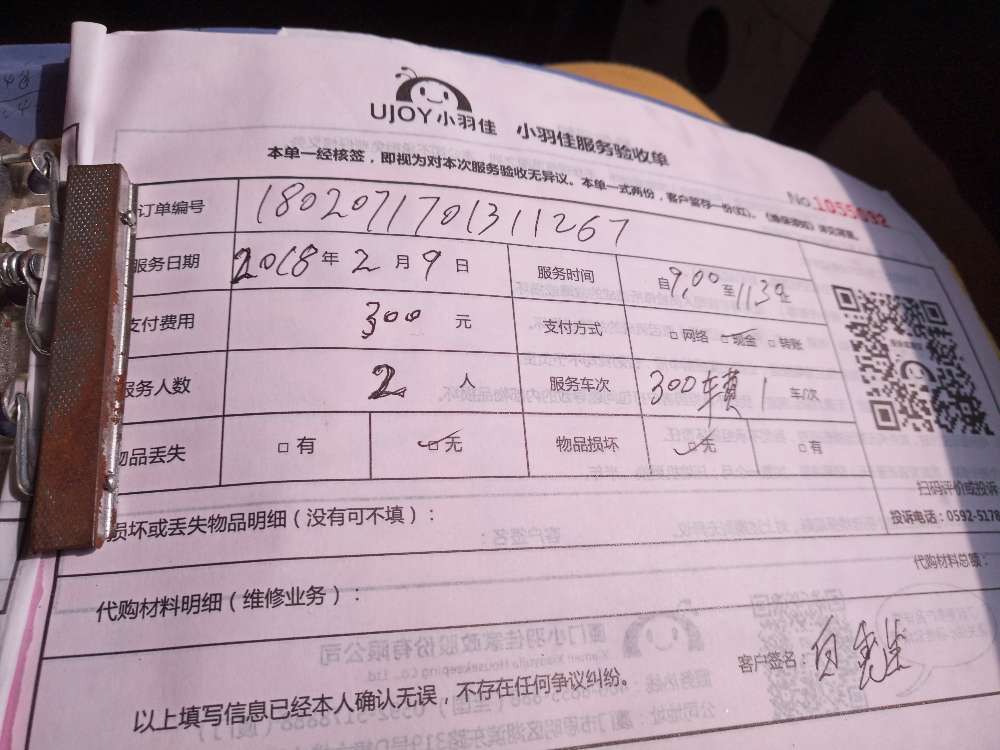 UJOY小羽佳 小羽佳服务验收单
本单一经核签，即视为对本次服务验收无异议。本单一式两份，客户留存一份(红)。
No 1055092
订单编号 1802071701311267
服务日期 2018年2月9日 服务时间 自9:00至11:30止
支付费用 300元 支付方式 □网络 □现金 □转账
服务人数 2人 服务车次 300 1 车/次
物品丢失 □有 □无 物品损坏 □无 □有
扫码评价或投诉
投诉电话：0592-5178
损坏或丢失物品明细（没有可不填）：
代购材料总额：
代购材料明细（维修业务）：
客户签名：
以上填写信息已经本人确认无误，不存在任何争议纠纷。